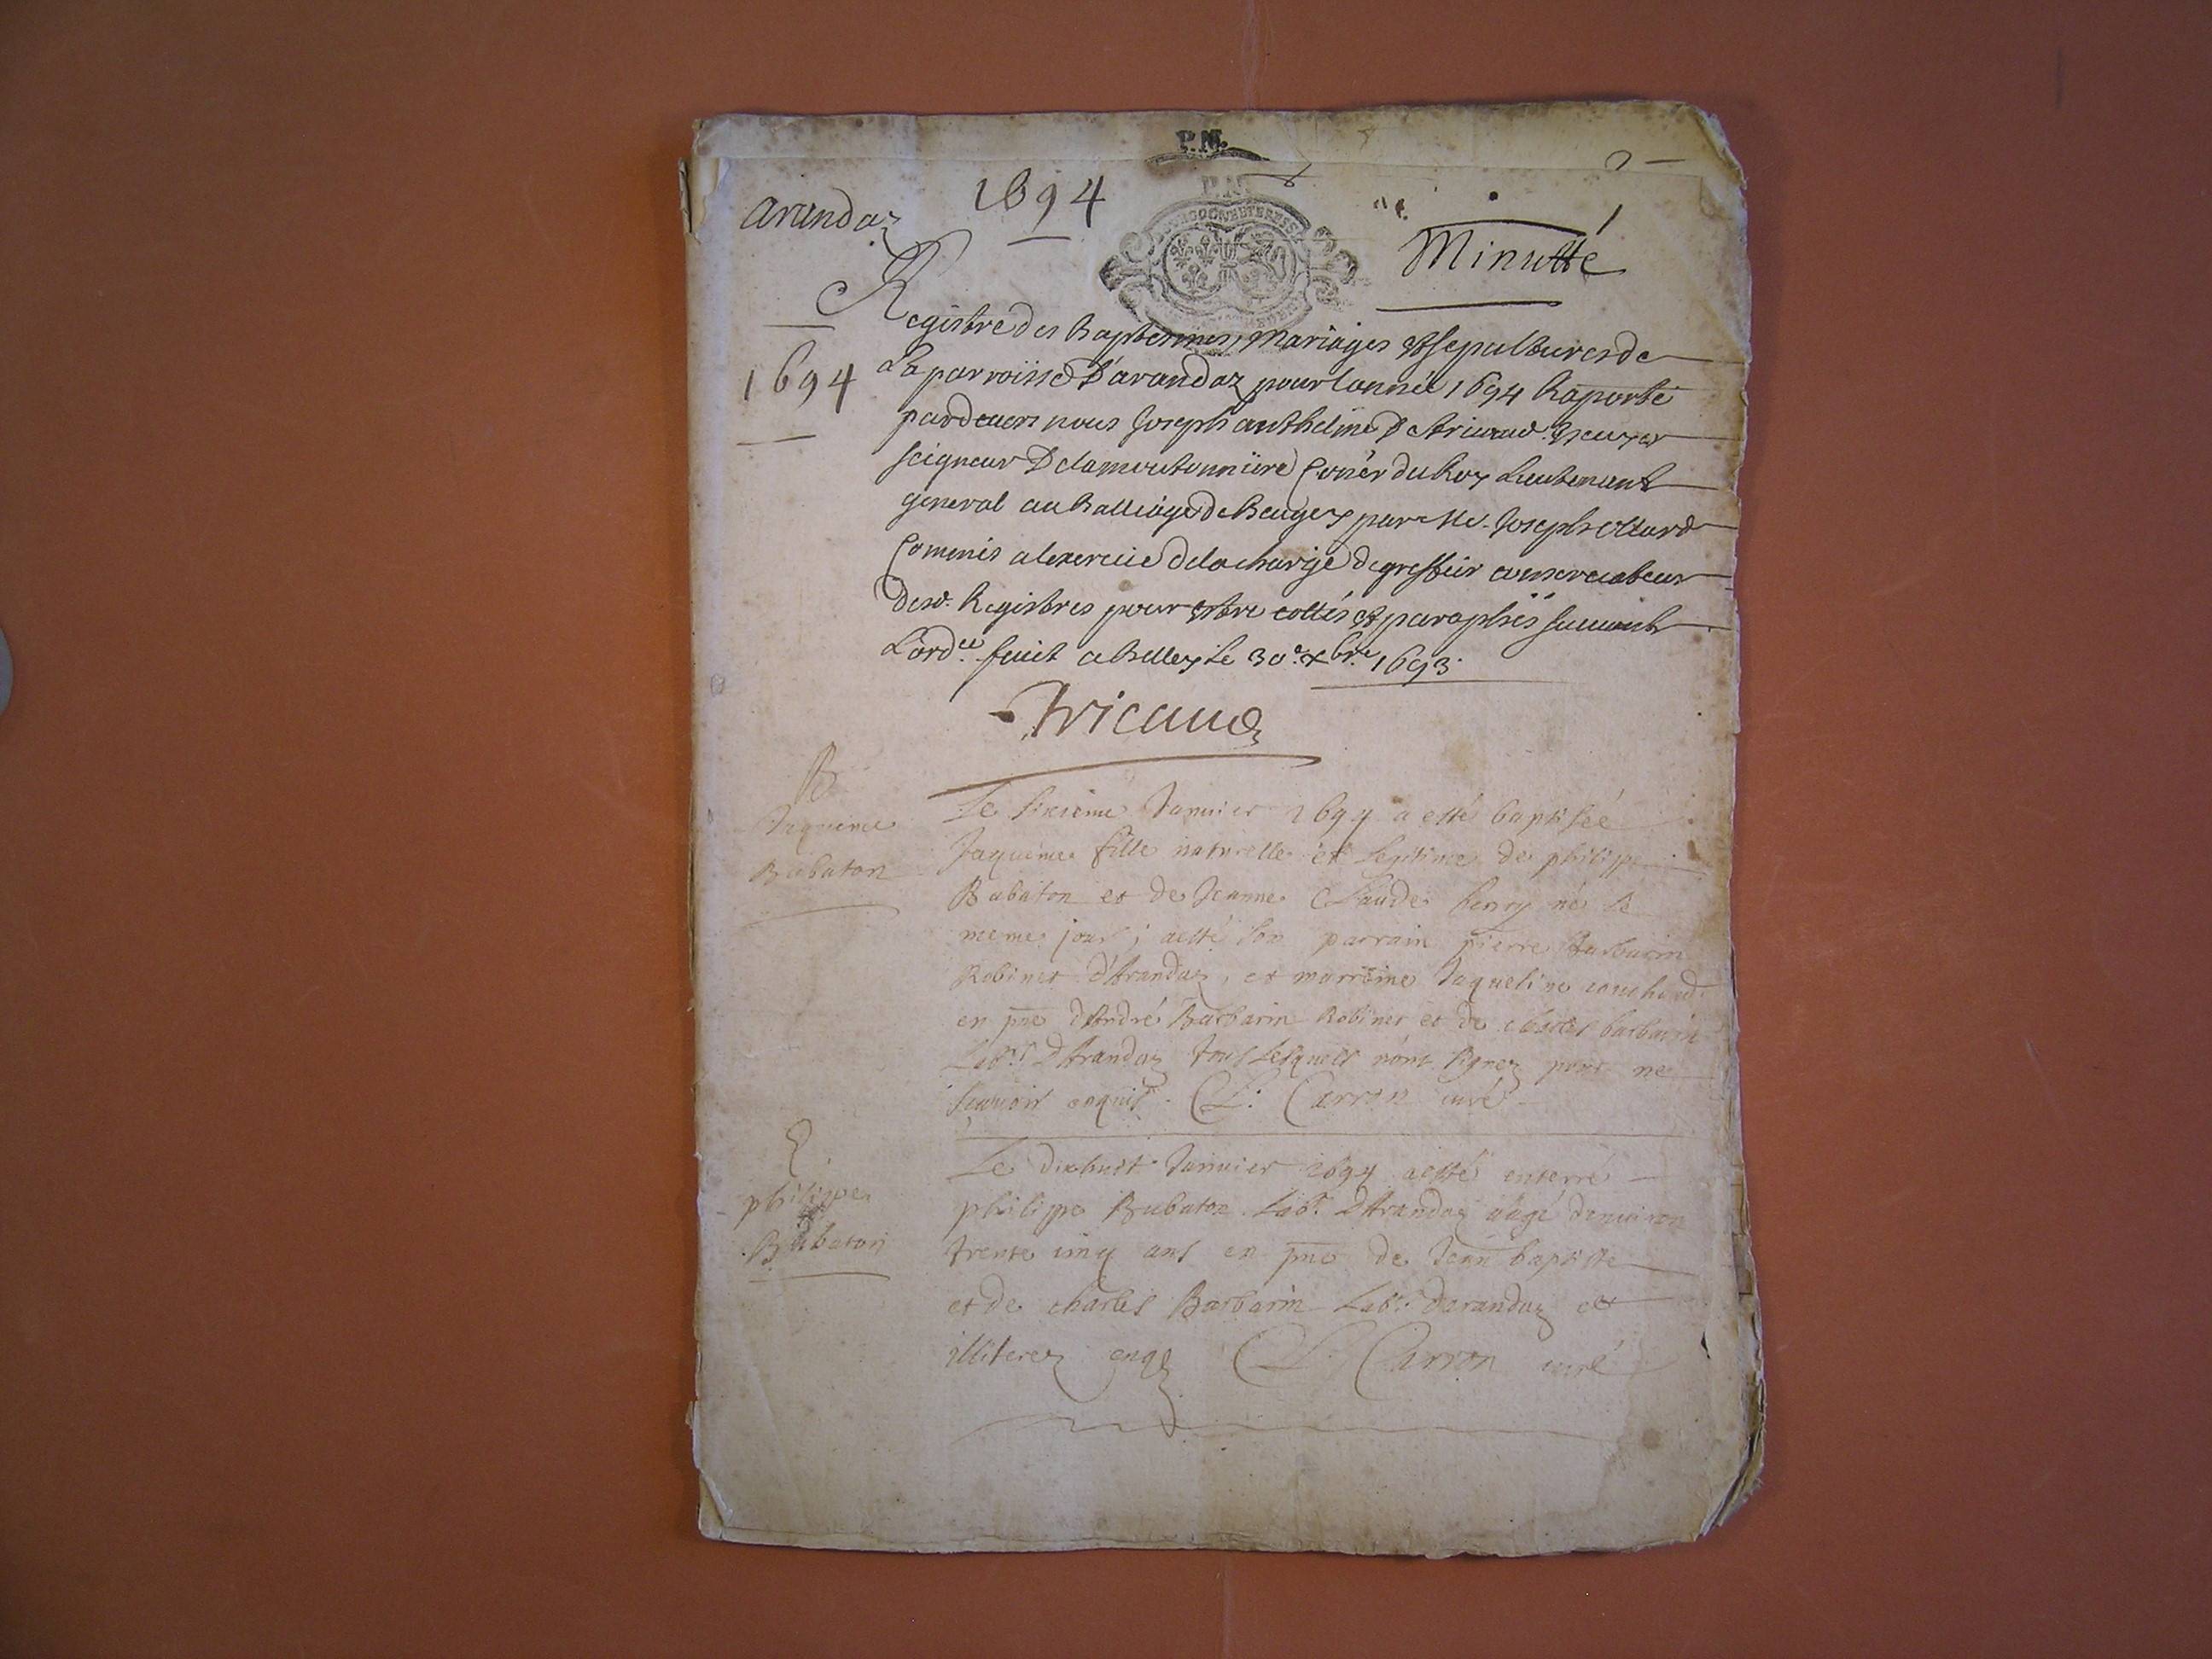 P.M.
arandaz 1694
Minutté
Registre des Baptesmes, Mariages et sepultures de
1694
La parroisse D'arandaz pour lannée 1694 Raporté
pardeuers nous Joseph anthelme De tricaud Escuyer
seigneur De lamoutonniere Coner du Roy Lieutenant
general au Balliage de Beugey par Me. Joseph
Commis a lexercice de la charge de greffier conservateur
desd. Registres pour estre cottés et paraphés suiuant
L'ordce. fait a Belley le 30e. xbre. 1693.
Tricaud
B
Jaqueme
Babaton
Le sixieme Januier 1694 a esté baptisée
Jaqueme fille naturelle et legitime de philippe
Babaton et de Jeanne Claude henry né le
meme jour ; a esté son parrain pierre Barbarin
Robinet d'Arandaz, et marreine Jaqueline
en pnce d'André Barbarin Robinet et de charles barbarin
Labrs. D'Arandaz tous lesquels n'ont signez pour ne
scauoir enquis. Cl. Carron curé
E.
philippe
Babaton
Le dixhuit Januier 1694 a esté enterré
philippe Babaton Labr. D'Arandaz aagé denuiron
trente cinq ans en pnce de Jean baptiste
et de charles Barbarin Labrs. darandaz et
illiterez enqz Cl. Carron curé